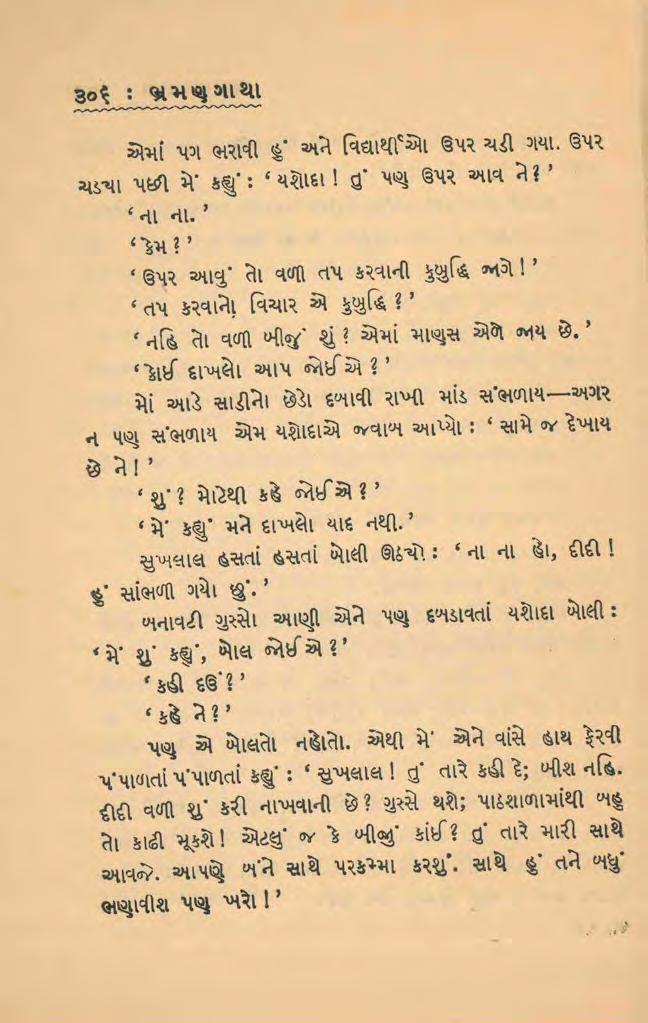 ૩૦૬ : ભ્રમણગાથા
એમાં પગ ભરાવી હું અને વિદ્યાર્થીઓ ઉપર ચડી ગયા. ઉપર
ચડ્યા પછી મેં કહ્યું : ‘ યશોદા ! તું પણ ઉપર આવ ને ? ’
‘ ના ના. ’
‘ કેમ ? ’
‘ ઉપર આવું તો વળી તપ કરવાની કુબુદ્ધિ જાગે ! ’
‘ તપ કરવાનો વિચાર એ કુબુદ્ધિ ? ’
‘ નહિ તો વળી બીજું શું ? એમાં માણસ એળે જાય છે. ’
‘ કોઈ દાખલો આપ જોઈએ ? ’
મોં આડે સાડીનો છેડો દબાવી રાખી માંડ સંભળાય—અગર
ન પણ સંભળાય એમ યશોદાએ જવાબ આપ્યો : ‘ સામે જ દેખાય
છે ને ! ’
‘ શું ? મોટેથી કહે જોઈએ ? ’
‘ મેં કહ્યું મને દાખલો યાદ નથી. ’
સુખલાલ હસતાં હસતાં બોલી ઊઠ્યો : ‘ ના ના હો, દીદી !
હું સાંભળી ગયો છું. ’
બનાવટી ગુસ્સો આણી એને પણ દબડાવતાં યશોદા બોલી :
‘ મેં શું કહ્યું, બોલ જોઈએ ? ’
‘ કહી દઉં ? ’
‘ કહે ને ? ’
પણ એ બોલતો નહોતો. એથી મેં એને વાંસે હાથ ફેરવી
પંપાળતાં પંપાળતાં કહ્યું : ‘ સુખલાલ ! તું તારે કહી દે; બીશ નહિ.
દીદી વળી શું કરી નાખવાની છે ? ગુસ્સે થશે; પાઠશાળામાંથી બહુ
તો કાઢી મૂકશે ! એટલું જ કે બીજું કાંઈ ? તું તારે મારી સાથે
આવજે. આપણે બંને સાથે પરકમ્મા કરશું. સાથે હું તને બધું
ભણાવીશ પણ ખરો ! ’